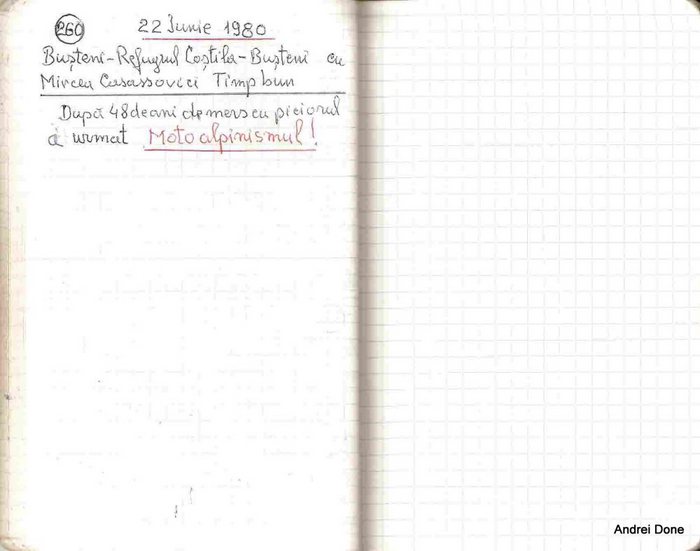 260 22 Iunie 1980
Bușteni-Refugiul Coștila-Bușteni cu
Mircea Casassovici Timp bun
După 48 de ani de mers cu piciorul
a urmat Motoalpinismul!
Andrei Done